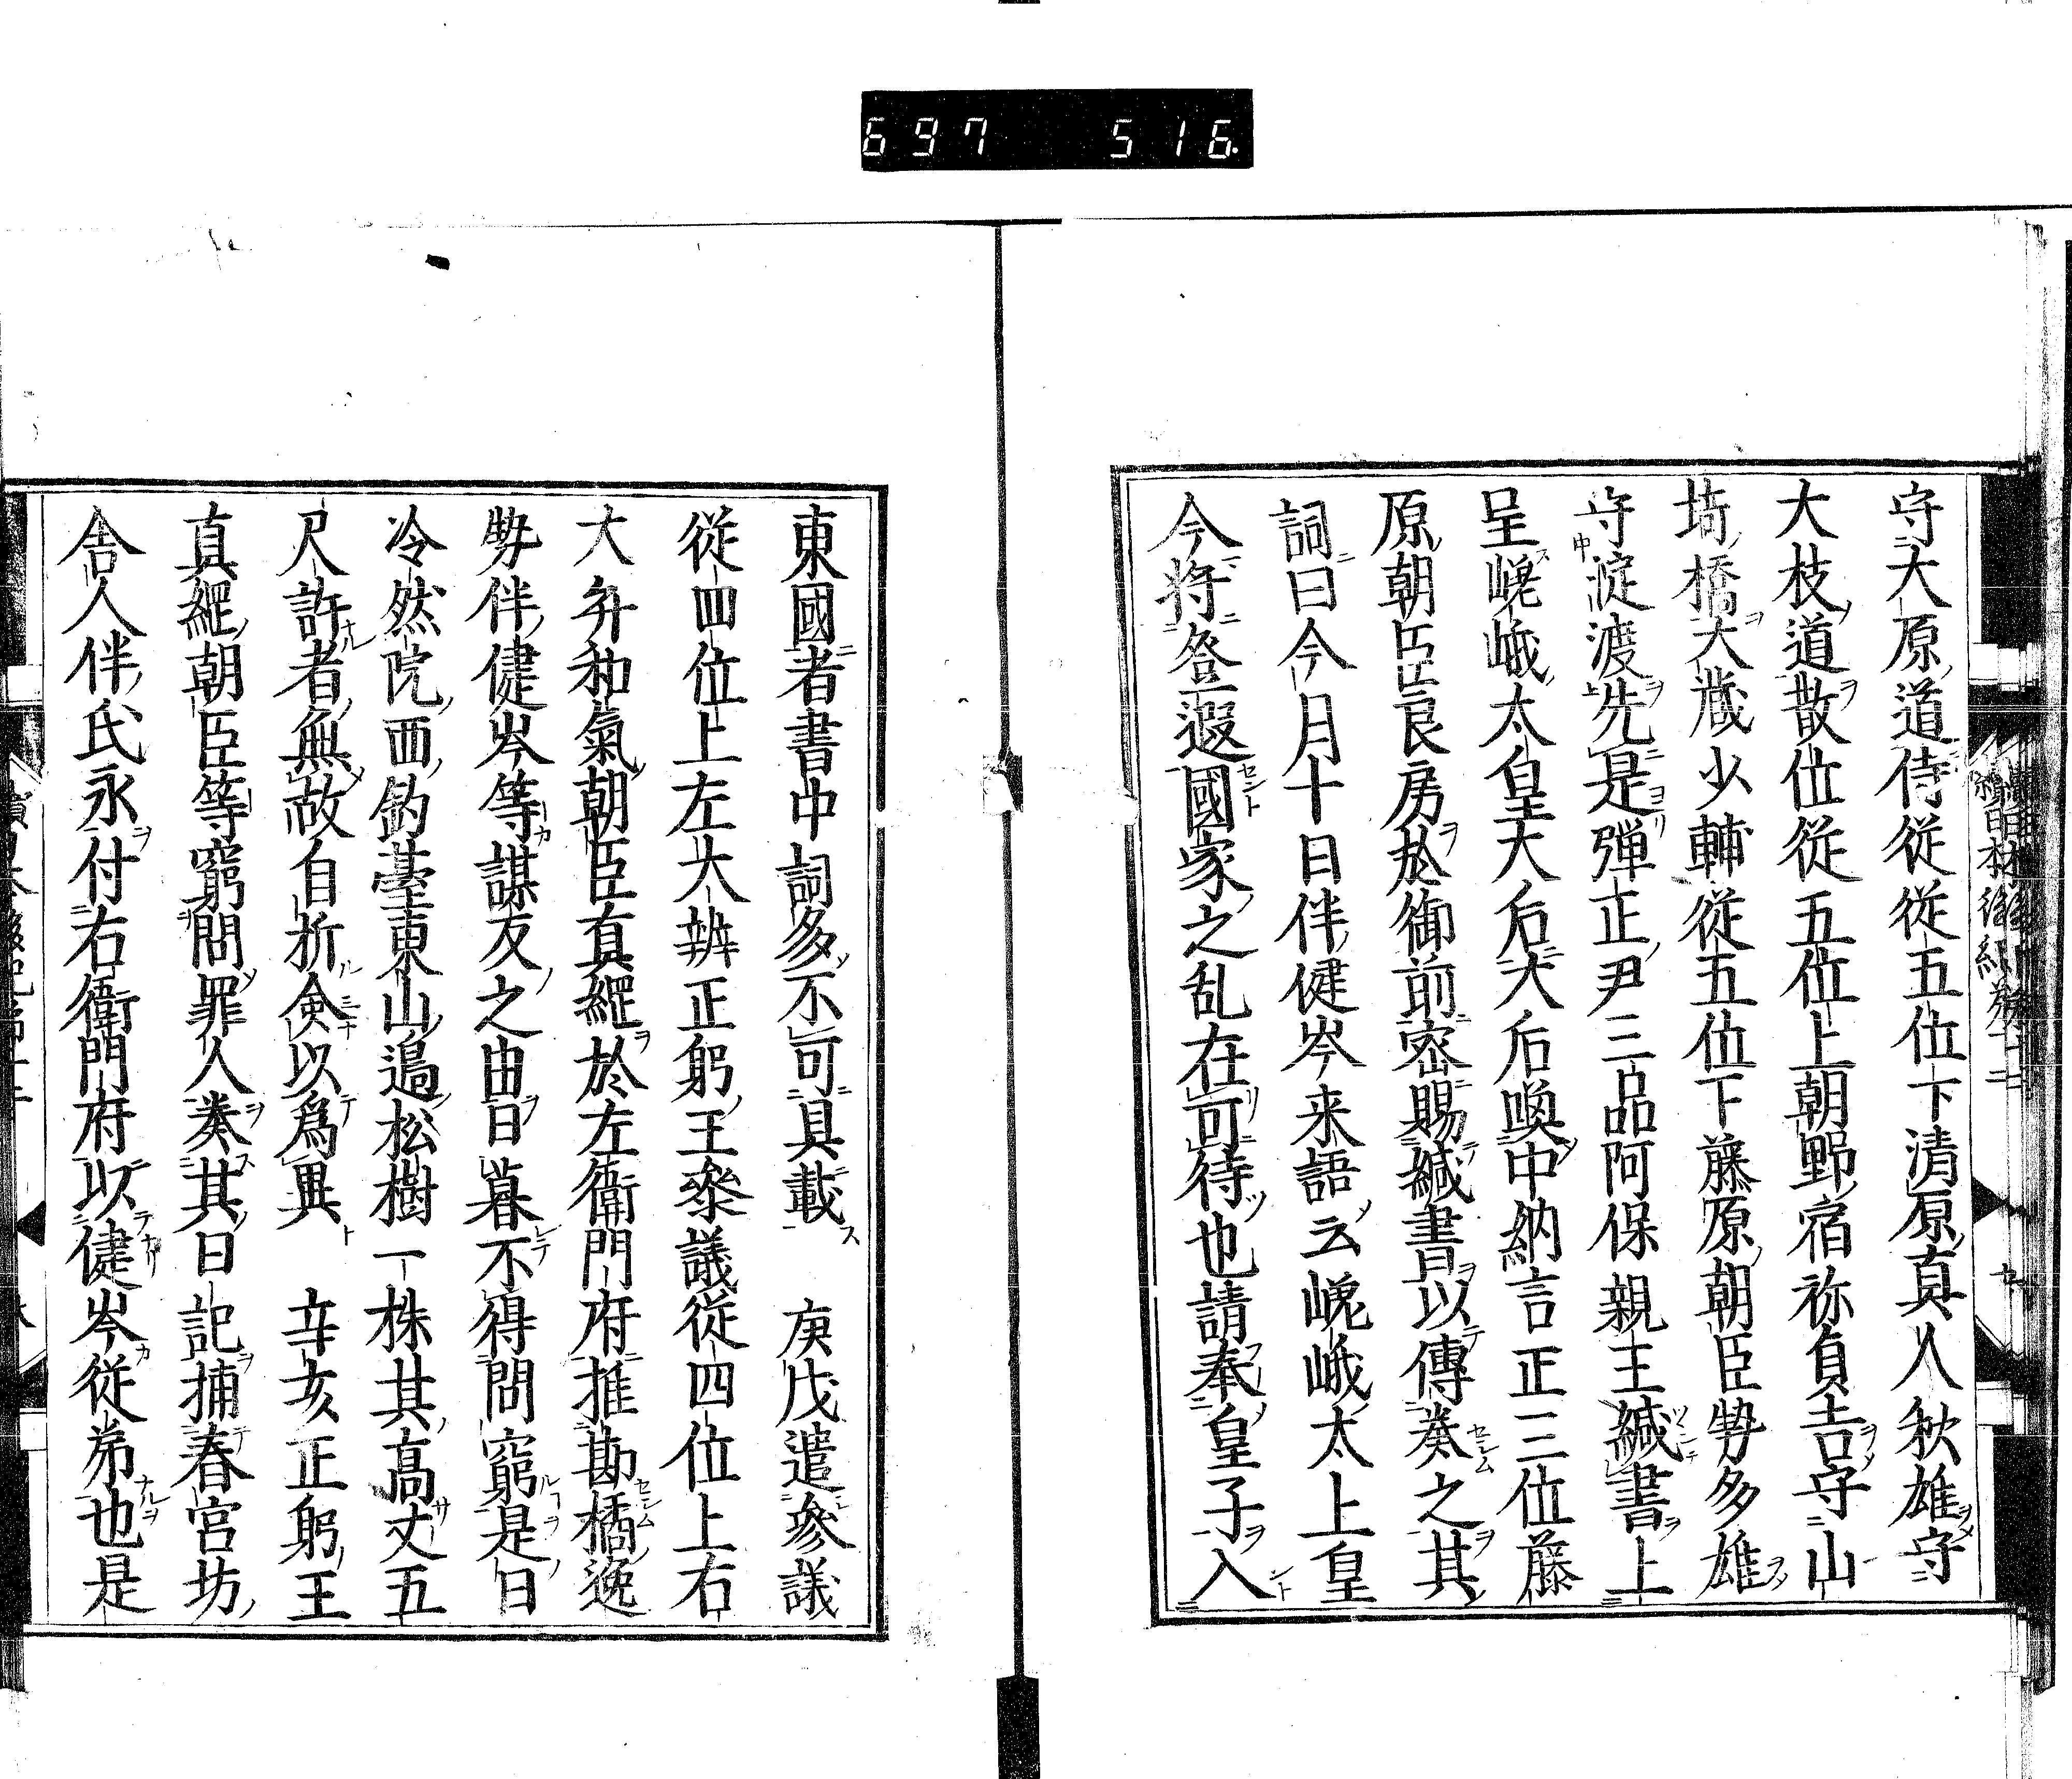 697 516
守大原道侍従従五位下清原真人秋雄守
大枝道散位従五位上朝野宿祢貞吉守山
埼橋大蔵少輔従五位下藤原朝臣勢多雄
守淀渡先是弾正尹三品阿保親王緘書上
呈嵯峨太皇大后大后喚中納言正三位藤
原朝臣良房於御前密賜緘書以傳奏之其
詞曰今月十日伴健岑来語云嵯峨太上皇
今将登遐國家之乱在可待也請奉皇子入
東國者書中詞多不可具載 庚戌遣參議
従四位上左大辨正躬王參議従四位上右
大弁和氣朝臣真綱於左衛門府推勘橘逸
勢伴健岑等謀反之由日暮不得問窮是日
冷然院西釣臺東山邉松樹一株其高丈五
尺許者無故自折僉以為異 辛亥正躬王
真綱朝臣等窮問罪人奏其日記捕春宮坊
舎人伴氏永付右衛門府以健岑従弟也是